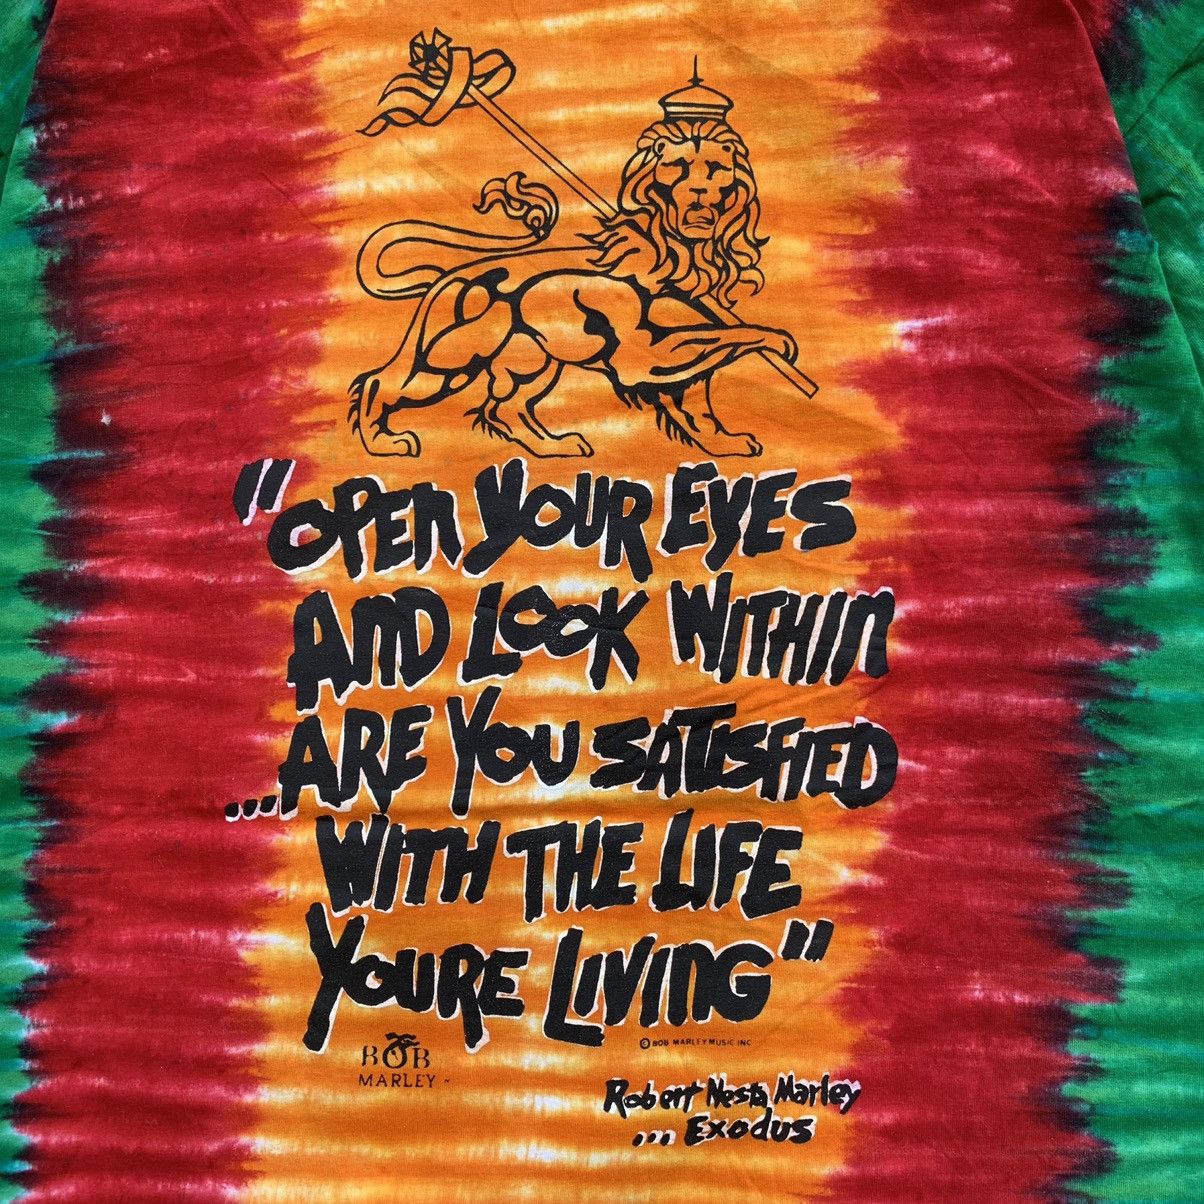 "OPEN YOUR EYES
AND LOOK WITHIN
...ARE YOU SATISFIED
WITH THE LIFE
YOURE LIVING"
© BOB MARLEY MUSIC INC
BOB
MARLEY
Robert Nesta Marley
... Exodus